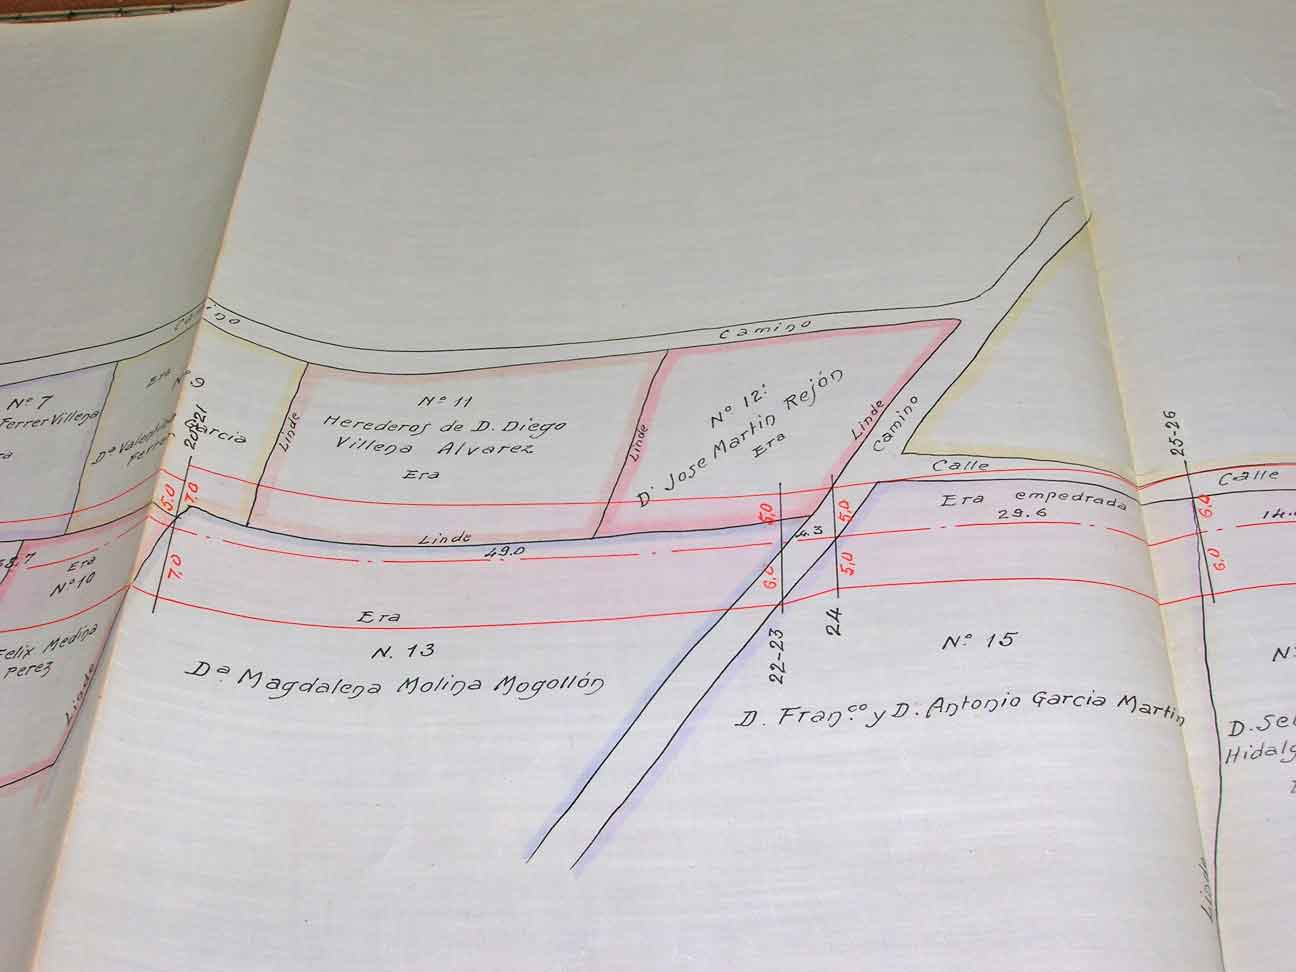 Camino
Camino
Nº 7
Ferrer Villena
Era
Nº 9
Dª Valentina
Ferrer
Garcia
20-21
Linde
Nº 11
Herederos de D. Diego
Villena Alvarez
Era
Linde
Nº 12:
D. Jose Martin Rejón
Era
Linde
Camino
Calle
25-26
Calle
Era empedrada
29.6
5.0
7.0
7.0
Linde
49.0
5.0
6.0
4.3
5.0
5.0
6.0
6.0
14.
58.7
Era
Nº 10
Felix Medina
Perez
Linde
Era
N. 13
Dª Magdalena Molina Mogollón
22-23
24
Nº 15
D. Fran.co y D. Antonio Garcia Martin
Nº
D. Se
Hidalg
Linde